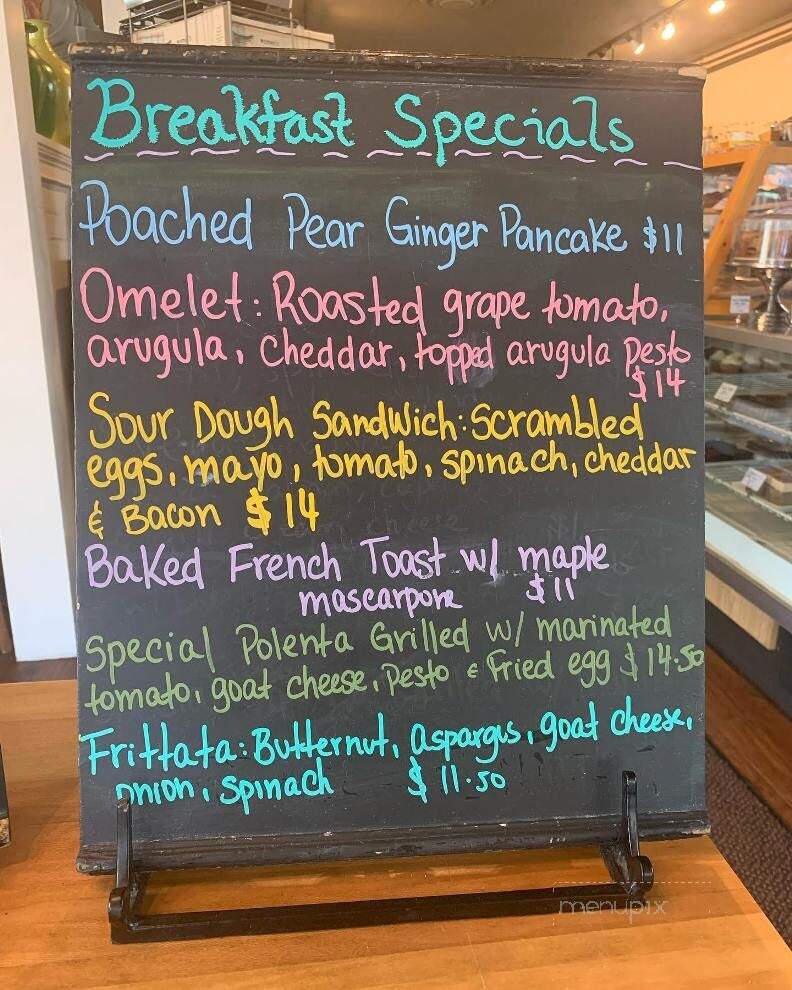 Breakfast Specials
Poached Pear Ginger Pancake $11
Omelet: Roasted grape tomato,
arugula, cheddar, topped arugula pesto
$14
Sour Dough Sandwich: Scrambled
eggs, mayo, tomato, spinach, cheddar
& Bacon $14
Baked French Toast w/ maple
mascarpone $11
Special Polenta Grilled w/ marinated
tomato, goat cheese, Pesto & Fried egg $14.50
Frittata: Butternut, aspargus, goat cheese,
onion, spinach $11.50
menupix